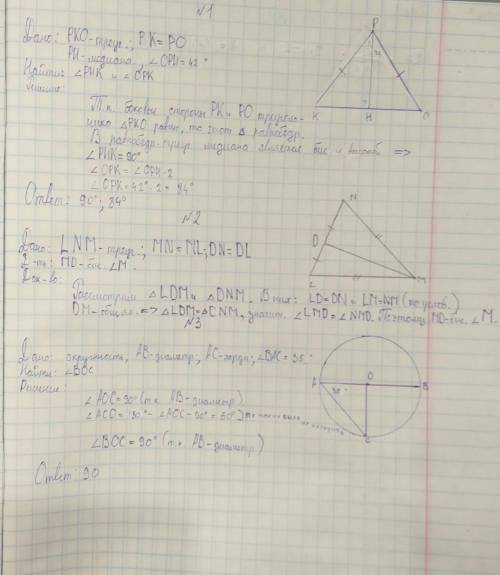 №1
Дано: РКО-треуг.; РК=РО
РН-медиана., ∠ОРН=42°
Найти: ∠РНК и ∠ОРК
Решение:
Т.к. боковые стороны РК и РО треуголь-
ника △РКО равны, то этот △ равнобедр.
В равнобедр. треуг. медиана является бис. и высотой =>
∠РНК=90°
∠ОРК=∠ОРН·2
∠ОРК=42°·2=84°
Ответ: 90°; 84°
P
K
H
O
№2
Дано: LNM-треуг.; MN=ML; DN=DL
Д-ть: MD-бис. ∠M.
Док-во:
Рассмотрим △LDM и △DNM. В них: LD=DN и LM=NM (по услов.)
DM-общая. => △LDM=△DNM, значит ∠LMD=∠NMD. Поэтому MD-бис. ∠M.
N
D
L
M
№3
Дано: окружность, АВ-диаметр, АС-хорда; ∠ВАС=35°
Найти: ∠ВОС
Решение:
∠АОС=90° (т.к. АВ-диаметр)
∠BOC=90° (т.к. АВ-диаметр)
Ответ: 90
A
O
B
C